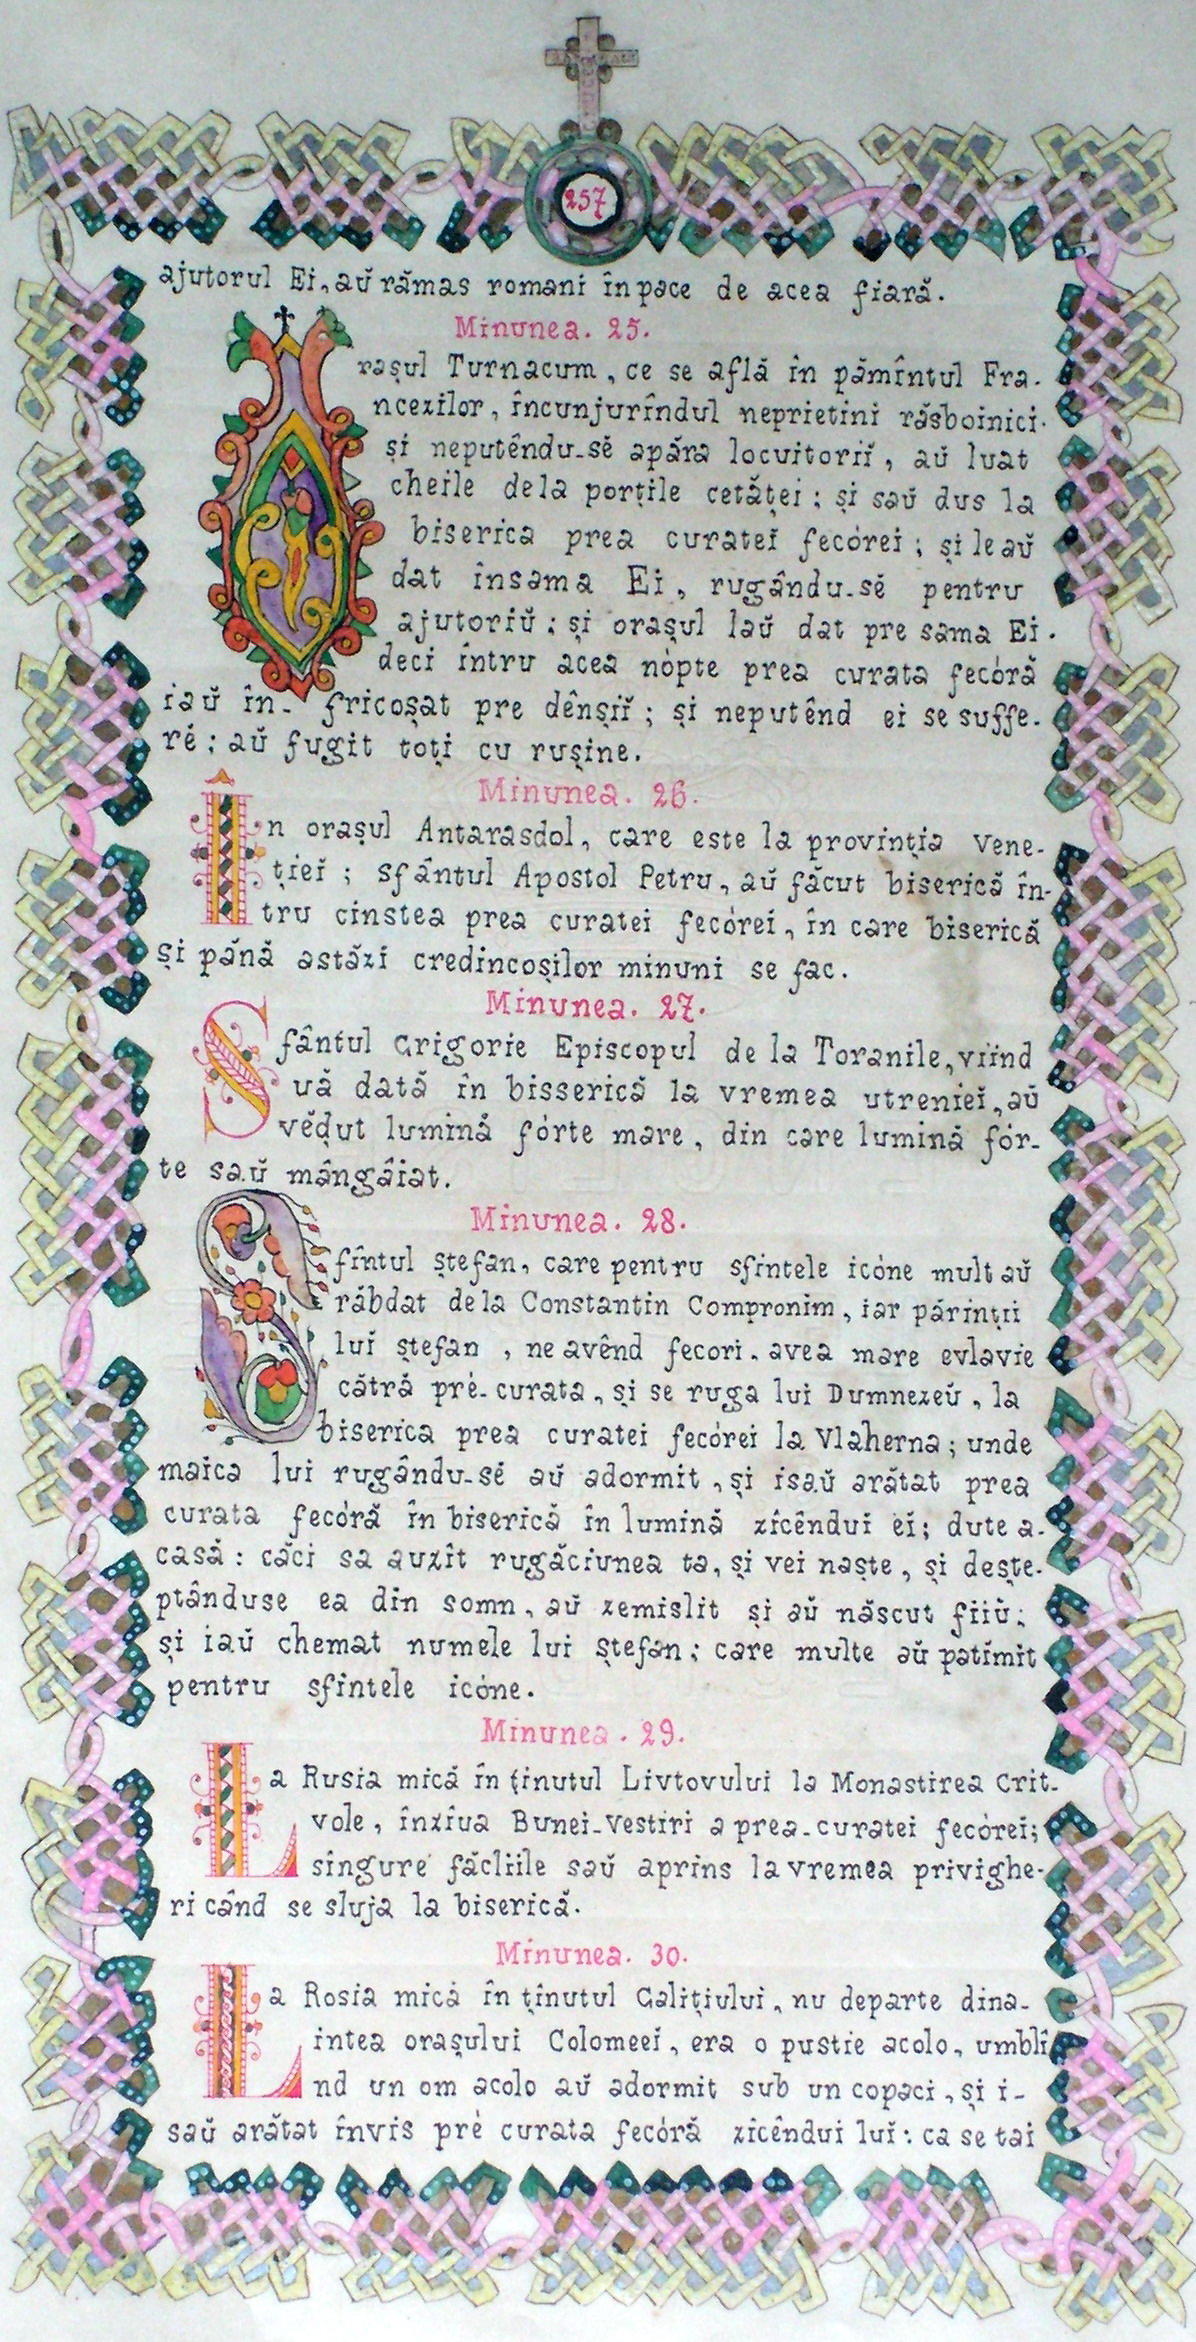 257
ajutorul Ei, aŭ rămas romani în pace de acea fiară.
Minunea. 25.
Orașul Turnacum, ce se află în pămîntul Fra-
ncezilor, încunjurîndul neprietini răsboinici.
și neputêndu-sĕ apăra locuitoriĭ, aŭ luat
cheile dela porțile cetăței; și saŭ dus la
biserica prea curateĭ fecórei; și le aŭ
dat însama Ei, rugându-sĕ pentru
ajutoriŭ; și orașul laŭ dat pre sama Ei.
deci întru acea nópte prea curata fecóră
iaŭ în- fricoșat pre dênșiĭ; și neputênd ei se suffe-
ré; aŭ fugit toți cu rușine.
Minunea. 26.
În orașul Antarasdol, care este la provinția Vene-
țieĭ; sfântul Apostol Petru, aŭ făcut biserică în-
tru cinstea prea curatei fecóreĭ, în care biserică
și până astăzi credincoșilor minuni se fac.
Minunea. 27.
Sfântul Grigorie Episcopul de la Toranile, viind
uă dată în bisserică la vremea utrenieĭ, aŭ
vĕḑut lumină fórte mare, din care lumină fór-
te saŭ mângăiat.
Minunea. 28.
Sfîntul Ștefan, care pentru sfintele icóne mult aŭ
răbdat dela Constantin Compronim, iar părinții
luĭ Ștefan, ne avênd fecori. avea mare evlavie
cătră pré-curata, și se ruga lui Dumnezeŭ, la
biserica prea curatei fecórei la Vlaherna; unde
maica lui rugându-sĕ aŭ adormit, și isaŭ arătat prea
curata fecóră în biserică în lumină zicêndui ei; dute a-
casă: căci sa auzit rugăciunea ta, și vei naște, și dește-
ptânduse ea din somn, aŭ zemislit și aŭ născut fiiŭ;
și iaŭ chemat numele lui Ștefan; care multe aŭ patimit
pentru sfintele icóne.
Minunea. 29.
La Rusia mică în ținutul Livtovului la Monastirea Crit-
vole, înziua Bunei-Vestiri a prea-curatei fecórei;
singure făcliile saŭ aprins la vremea privighe-
ri când se sluja la biserică.
Minunea. 30.
La Rosia mică în ținutul Galițiului, nu departe dina-
intea orașului Colomeeĭ, era o pustie acolo, umblî
nd un om acolo aŭ adormit sub un copaci, și i-
saŭ arătat învis pré curata fecóră zicêndui luĭ: ca se tai